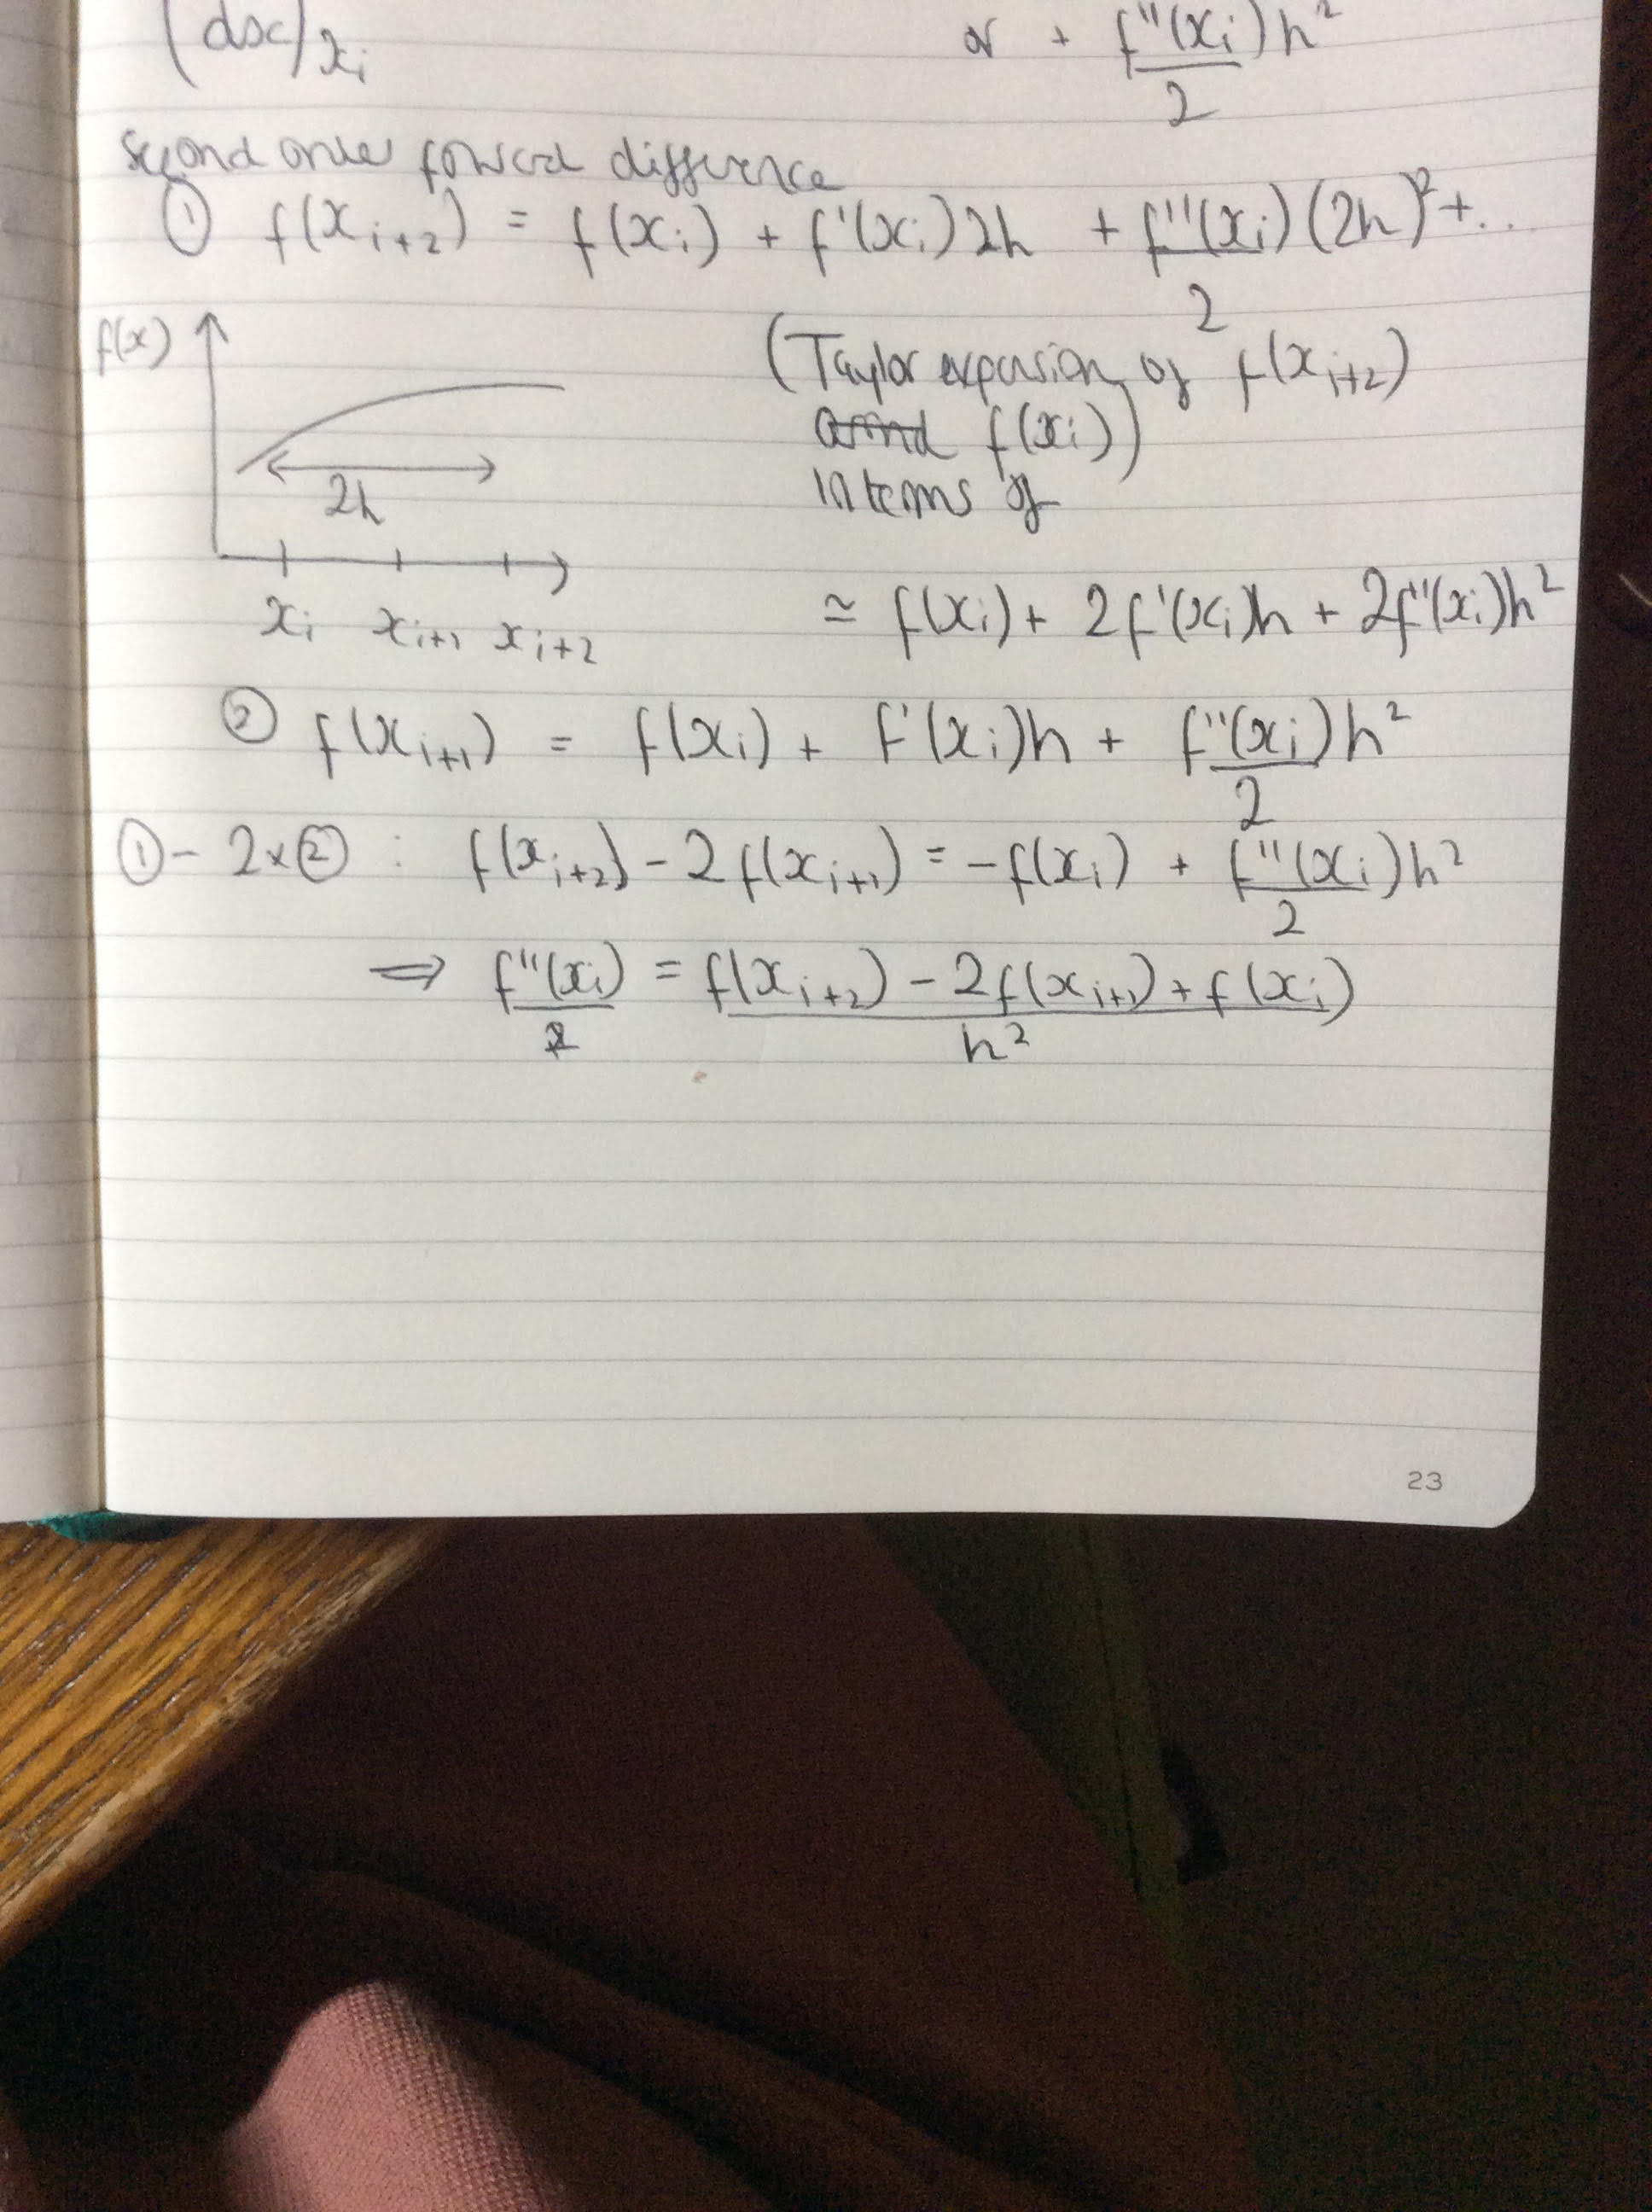 (dx)xi or + f''(xi)h²
2
Second order forward difference
① f(xi+2) = f(xi) + f'(xi)2h + f''(xi)(2h)²+...
2
f(x)
(Taylor expansion of f(xi+2)
around f(xi))
in terms of
2h
xi xi+1 xi+2
≃ f(xi) + 2f'(xi)h + 2f''(xi)h²
② f(xi+1) = f(xi) + f'(xi)h + f''(xi)h²
2
① - 2×② : f(xi+2) - 2f(xi+1) = -f(xi) + f''(xi)h²
2
⇒ f''(xi) = f(xi+2) - 2f(xi+1) + f(xi)
h²
23